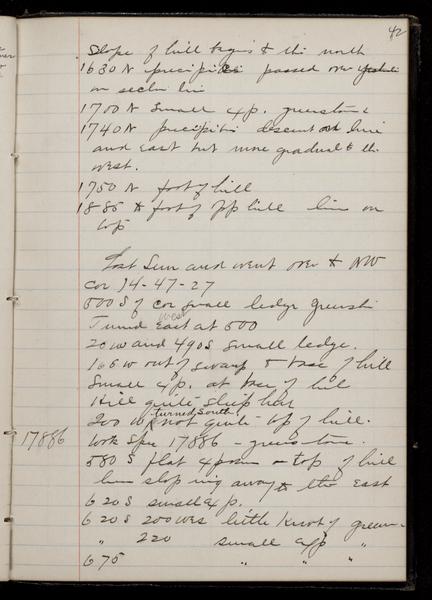 42
Slope of hill begins to the north
1630 N precipices passed over
on section line
1700 N small exp. greenstone
1740 N precipitis descent on line
and East but more gradual to the
west.
1750 N foot of hill
1885 N foot of hill line on
top
Lost Sun and went over to NW
cor 14-47-27
500 S of cor small ledge greenst
west
Turned East at 500
20 W and 490 S small ledge.
165 W out of swamp to base of hill
Small exp. at base of hill
Hill quite steep here
turned South
200 W not quite top of hill.
17886
Took Spec 17886 - greenstone.
580 S flat exposure on top of hill
line sloping away to the East
620 S small exp.
620 S 200 W little knot of green-
" 220 small exp "
675 " " "